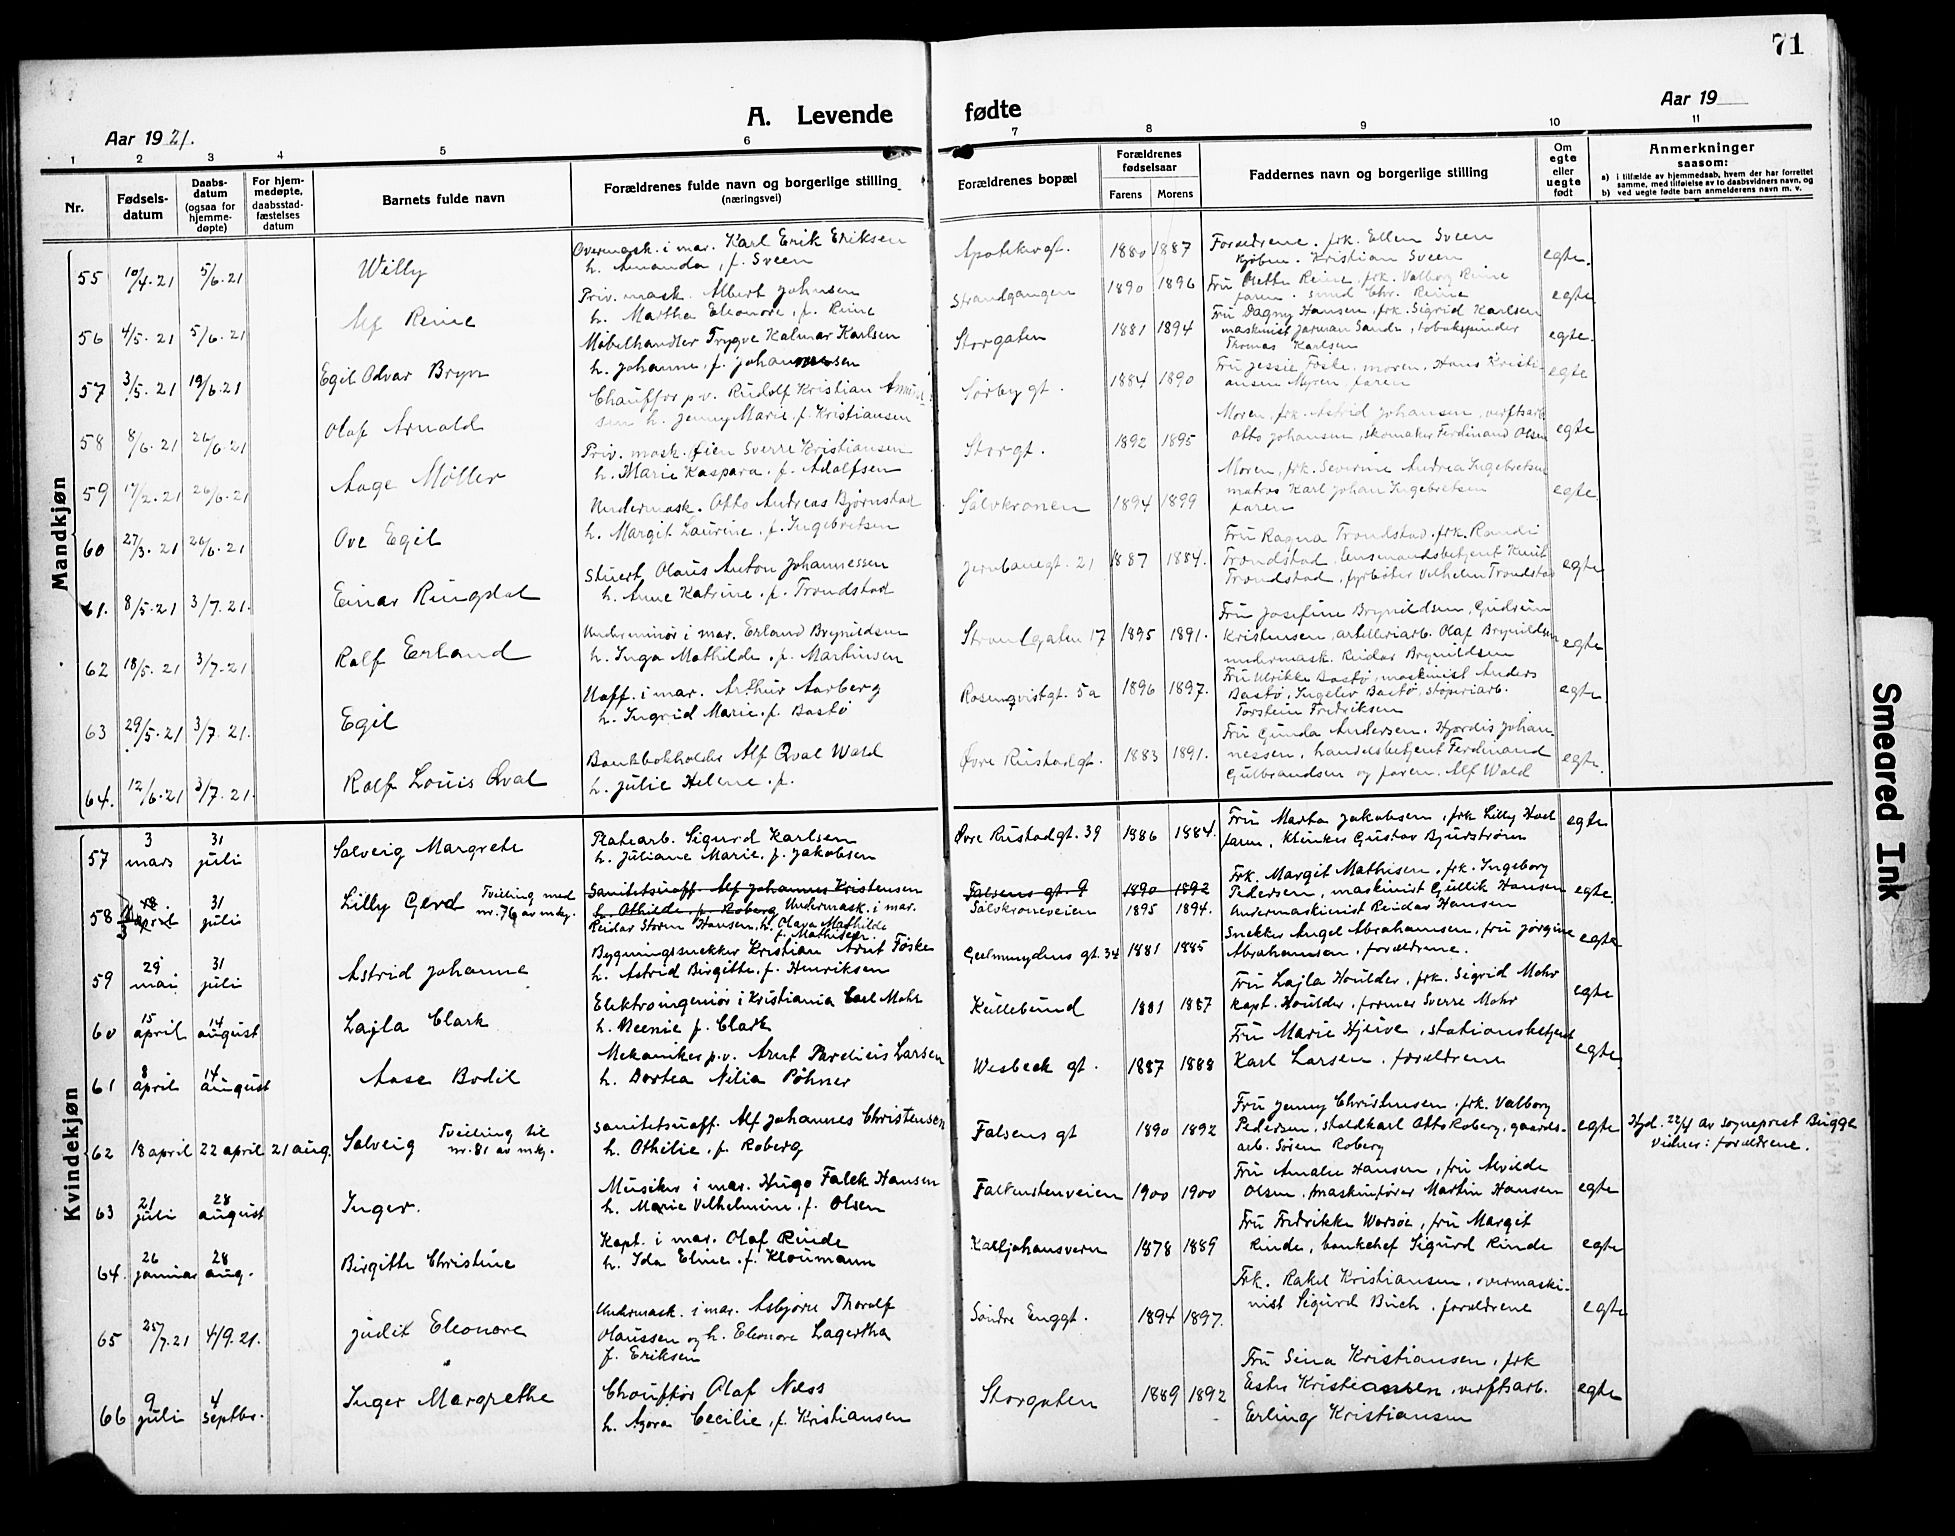 71
A. Levende fødte
Aar 1921.
Aar 19
1 2 3 4 5 6 7 8 9 10 11
Nr.
Fødsels-
datum
Daabs-
datum
(ogsaa for
hjemme-
døpte)
For hjem-
medøpte,
daabsstad-
fæstelses
datum
Barnets fulde navn
Forældrenes fulde navn og borgerlige stilling
(næringsvei)
Forældrenes bopæl
Forældrenes
fødselsaar
Farens Morens
Faddernes navn og borgerlige stilling
Om
egte
eller
uegte
født
Anmerkninger
saasom:
a) i tilfælde av hjemmedaab, hvem der har forrettet
samme, med tilføielse av to daabsvidners navn, og
b) ved uegte fødte barn anmelderens navn m. v.
Mandkjøn
55 10/4.21 5/6.21 Willy
Overmask. i mar. Karl Erik Eriksen
h. Amanda, f. Sveen
1880 1887
Forældrene. frk. Ellen Sveen
kjøbm. Kristian Sveen
egte.
56 4/5.21 5/6.21 Alf Reine
Priv. mask. Albert Johnsen
h. Martha Eleonore, f. Reine
Strandgangen 1890 1896
Fru Reine, frk. Valborg Reine
faren. Chr. Reine
egte
57 3/5.21 19/6.21 Egil Odvar Bryn
Møbelhandler Trygve Kalmar Karlsen
h. Johanne, f. Johannesen
Storgaten 1881 1894
Fru Dagny Hansen, frk. Sigrid Karlsen
maskinist Sande,
Thomas Karlsen
egte.
58 8/6.21 26/6.21 Olaf Arnold
Chauffør p.v. Rudolf Kristian
h. Jenny Marie, f. Kristiansen
Sørby gt. 1884 1890
Fru Jessie Føske, moren, Hans Kristi-
ansen Myren, faren
egte
59 17/2.21 26/6.21 Aage Møller
Priv. mask. Øien Sverre Kristiansen
h. Marie Kaspara, f. Adolfsen
Storgt. 1892 1895
Moren, frk. Astrid Johansen, verftsarb.
Otto Johansen, skomaker Ferdinand Olsen
egte
60 27/3.21 26/6.21 Ove Egil
Undermask. Otto Andreas Bjørnstad
h. Margit Laurine, f. Ingebretsen
Sølvkronen 1894 1899
Moren, frk. Severine Andrea Ingebretsen
matros Karl Johan Ingebretsen
faren
egte.
61. 8/5.21 3/7.21. Einar Ringdal
Stuert Olaus Anton Johannessen
h. Anne Katrine, f. Trondstad
Jernbanegt. 21 1887 1884.
Fru Ragna Trondstad, frk. Randi
Trondstad, lensmandsbetjent Knut
Trondstad, fyrbøter Vilhelm Trondstad
egte
62 18/5.21 3/7.21. Rolf Erland
Underminør i mar. Erland Brynildsen
h. Inga Mathilde, f. Martinsen
Strandgaten 17 1895 1891.
Fru Josefine Brynildsen, Gudrun
Kristensen, artilleriarb. Olaf Brynildsen
undermask. Reidar Brynildsen
egte
63 29/5.21 3/7.21. Egil
Uoff. i mar. Arthur Aarberg
h. Ingrid Marie, f. Bastø
Rosenqvistgt. 5a 1896 1897.
Fru Ulrikke Bastø, maskinist Anders
Bastø, Ingelev Bastø, støperiarb.
Torstein Fredriksen
egte.
64. 12/6.21 3/7.21. Rolf Louis Qval
Bankbokholder Alf Qval Wold
h. Julie Helene, f.
Øvre Rustadgt. 1883 1891.
Fru Gunda Andersen, Hjørdis Johan-
nessen, handelsbetjent Ferdinand
Gulbrandsen og faren, Alf Wold
egte.
Kvindekjøn
57 3 mars 31 juli Solveig Margrete
Platearb. Sigurd Karlsen
h. Juliane Marie, f. Jakobsen
Øvre Rustadgt. 39 1886 1884.
Fru Marta Jakobsen, frk Lilly Hoel
faren, klinker Gustav Bjurstrøm
egte
58 april 31 juli Lilly Gerd Tvilling med
nr. 76 av mkj.
Sanitetsuoff. Alf Johannes Kristensen
h. Othilde, f. Roberg Undermask. i mar.
Reidar Storm Hansen, h. Olava Mathilde
f. Mathisen.
Falsens gt. 9 1890 1892
Sølvkroneveien 1895 1894.
Frk. Margit Mathisen, frk. Ingeborg
Pedersen, maskinist Gullik Hansen
undermaskinist Reidar Hansen
egte.
59 29 mai 31 juli Astrid Johanne
Bygningssnekker Kristian Arnt Føske
h. Astrid Birgitte, f. Henriksen
Gulmyrdens gt. 34 1881 1885
Snekker Angel Abrahamsen, fru Jørgine
Abrahamsen, forældrene.
egte
60 15 april 14 august Lajla Clark
Elektroingeniør i Kristiania Carl Mohr
h. Beenie f. Clark
Kullebund 1881 1887
Fru Lajla Houlder, frk. Sigrid Mohr
kapt. Houlder, former Sverre Mohr
egte
61 8 april 14 august Aase Bodil
Mekaniker p.v. Arnt Pavelius Larsen
h. Dortea Nilia Pöhner
Wesbeck gt. 1887 1888
Fru Marie Hjelve, stationsbetjent
Karl Larsen, forældrene
egte.
62 18 april 22 april 21 aug. Solveig Tvilling til
nr. 81 av mkj.
Sanitetsuoff. Alf Johannes Christensen
h. Othilie, f. Roberg
Falsens gt 1890 1892
Fru Jenny Christensen, frk. Valborg
Pedersen, staldkarl Otto Roberg, gaards-
arb. Søren Roberg
egte
Hjd. 22/4 av sogneprest Bugge
vidner: forældrene.
63 21 juli 28 august Inger.
Musiker i mar. Hugo Falck Hansen
h. Marie Vilhelmine, f. Olsen
Falkenstenveien 1900 1900
Fru Amalie Hansen, fru Alvilde
Olsen, maskinfører Martin Hansen
egte
64. 26 januar 28 aug. Birgitte Christine
Kapt. i mar. Olaf Rinde
h. Ida Eline, f. Kloumann
Karljohansvern 1878 1889
Fru Fredrikke Worsøe, fru Margit
Rinde, bankchef Sigurd Rinde
egte
65 25/7.21 4/9.21. Judit Eleonore
Undermask. i mar. Asbjørn Thoralf
Olaussen og h. Eleonore Lagertha
f. Eriksen
Søndre Enggt. 1894 1897.
Frk. Rakel Kristiansen, overmaski-
nist Sigurd Buch, forældrene
egte
66 9 juli 4 septbr. Inger Margrethe
Chauffør Olaf Næss
h. Agora Cecilie, f. Kristiansen
Storgaten 1889 1892
Fru Sina Kristiansen, frk
Ester Kristiansen, verftsarb.
Erling Kristiansen
egte
Smeared Ink